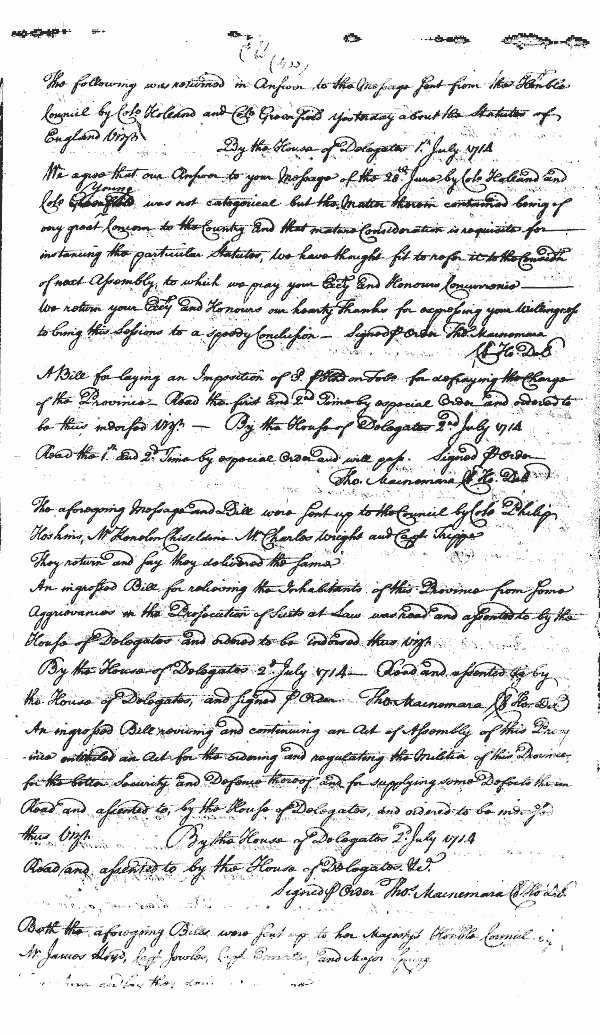 The following was returned in Answer to the Message sent from the Honble
Council by Colo Holland and Colo Greenfield yesterday about the Statutes of
England Vizt
By the House of Delegates 1st July 1714
We agree that our Answer to your Message of the 28th June by Colo Holland and
Young
Colo Greenfield was not categorical but the Matter therein contained being of
very great Concern to the Country and that mature Consideration is requisite for
instancing the particular Statutes, We have thought fit to refer it to the Considn
of next Assembly, to which we pray your Excy and Honours Concurrence
We return your Excy and Honours our hearty thanks for expressing your Willingness
to bring this Sessions to a speedy Conclusion Signed P Order Tho. Macnemara
Cl Ho. Del
A Bill for laying an Imposition of 3. P Hhd on Tobo for defraying the Charge
of the Province Read the first and 2nd Time by especial Order and ordered to
be thus indorsed Vizt By the House of Delegates 2nd July 1714
Read the 1st and 2d Time by especial Order and will pass. Signed P Order
Tho. Macnemara Cl Ho. Del
The aforegoing Message and Bill were sent up to the Council by Colo Philip
Hoskins, Mr Kenelm Chiseldine Mr Charles Wright and Capt Trippe
They return and say they delivered the same
An ingrossed Bill for relieving the Inhabitants of this Province from some
Aggrievances in the Prosecution of Suits at Law was read and assented to by the
House of Delegates and ordered to be indorsed thus Vizt
By the House of Delegates 2d July 1714 Read and assented to by
the House of Delegates, and signed P Order Tho Macnemara Cl Ho. Del
An ingrossed Bill reviving and continuing an Act of Assembly of this Prov
ince entituled an Act for the ordering and regulating the Militia of this Province
for the better Security and Defence thereof and for supplying some Defects therein
Read and assented to, by the House of Delegates, and ordered to be indorsd
thus Vizt By the House of Delegates 2d July 1714
Read and assented to by the House of Delegates &c.
Signed P Order Thos Macnemara Cl Ho Del.
Both the aforegoing Bills were sent up to her Majestys Honble Council by
Mr James Lloyd, Capt Jowles, Capt and Major
and say they